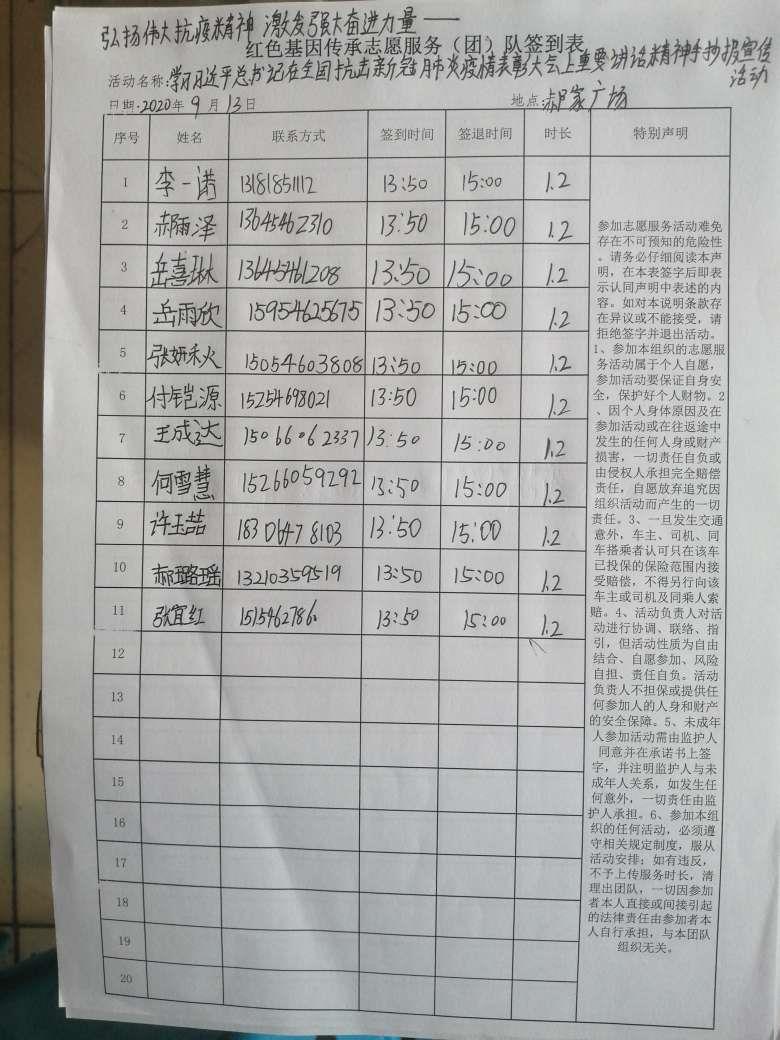 弘扬伟大抗疫精神 激发强大奋进力量——
红色基因传承志愿服务（团）队签到表
活动名称:学习习近平总书记在全国抗击新冠肺炎疫情表彰大会上重要讲话精神手抄报宣传
活动
日期:2020年9月13日 地点:郝家广场
序号 姓名 联系方式 签到时间 签退时间 时长 特别声明
1 李一诺 13181851112 13:50 15:00 1.2
2 郝雨泽 13645462310 13:50 15:00 1.2
3 岳喜琳 13645461208 13:50 15:00 1.2
4 岳雨欣 15954625675 13:50 15:00 1.2
5 张妍秋 15054603808 13:50 15:00 1.2
6 付铠源 15254698021 13:50 15:00 1.2
7 王成达 15066062337 13:50 15:00 1.2
8 何雪慧 15266059292 13:50 15:00 1.2
9 许玉喆 18306478103 13:50 15:00 1.2
10 郝璐瑶 13210359519 13:50 15:00 1.2
11 张宜红 1515462786 13:50 15:00 1.2
12
13
14
15
16
17
18
19
20
参加志愿服务活动难免
存在不可预知的危险性
。请务必仔细阅读本声
明，在本表签字后即表
示认同声明中表述的内
容。如对本说明条款存
在异议或不能接受，请
拒绝签字并退出活动。
1、参加本组织的志愿服
务活动属于个人自愿，
参加活动要保证自身安
全，保护好个人财物。2
、因个人身体原因及在
参加活动或在往返途中
发生的任何人身或财产
损害，一切责任自负或
由侵权人承担完全赔偿
责任，自愿放弃追究因
组织活动而产生的一切
责任。3、一旦发生交通
意外，车主、司机、同
车搭乘者认可只在该车
已投保的保险范围内接
受赔偿，不得另行向该
车主或司机及同乘人索
赔。4、活动负责人对活
动进行协调、联络、指
引，但活动性质为自由
结合、自愿参加、风险
自担、责任自负。活动
负责人不担保或提供任
何参加人的人身和财产
的安全保障。5、未成年
人参加活动需由监护人
同意并在承诺书上签
字，并注明监护人与未
成年人关系，如发生任
何意外，一切责任由监
护人承担。6、参加本组
织的任何活动，必须遵
守相关规定制度，服从
活动安排；如有违反，
不予上传服务时长，清
理出团队，一切因参加
者本人直接或间接引起
的法律责任由参加者本
人自行承担，与本团队
组织无关。